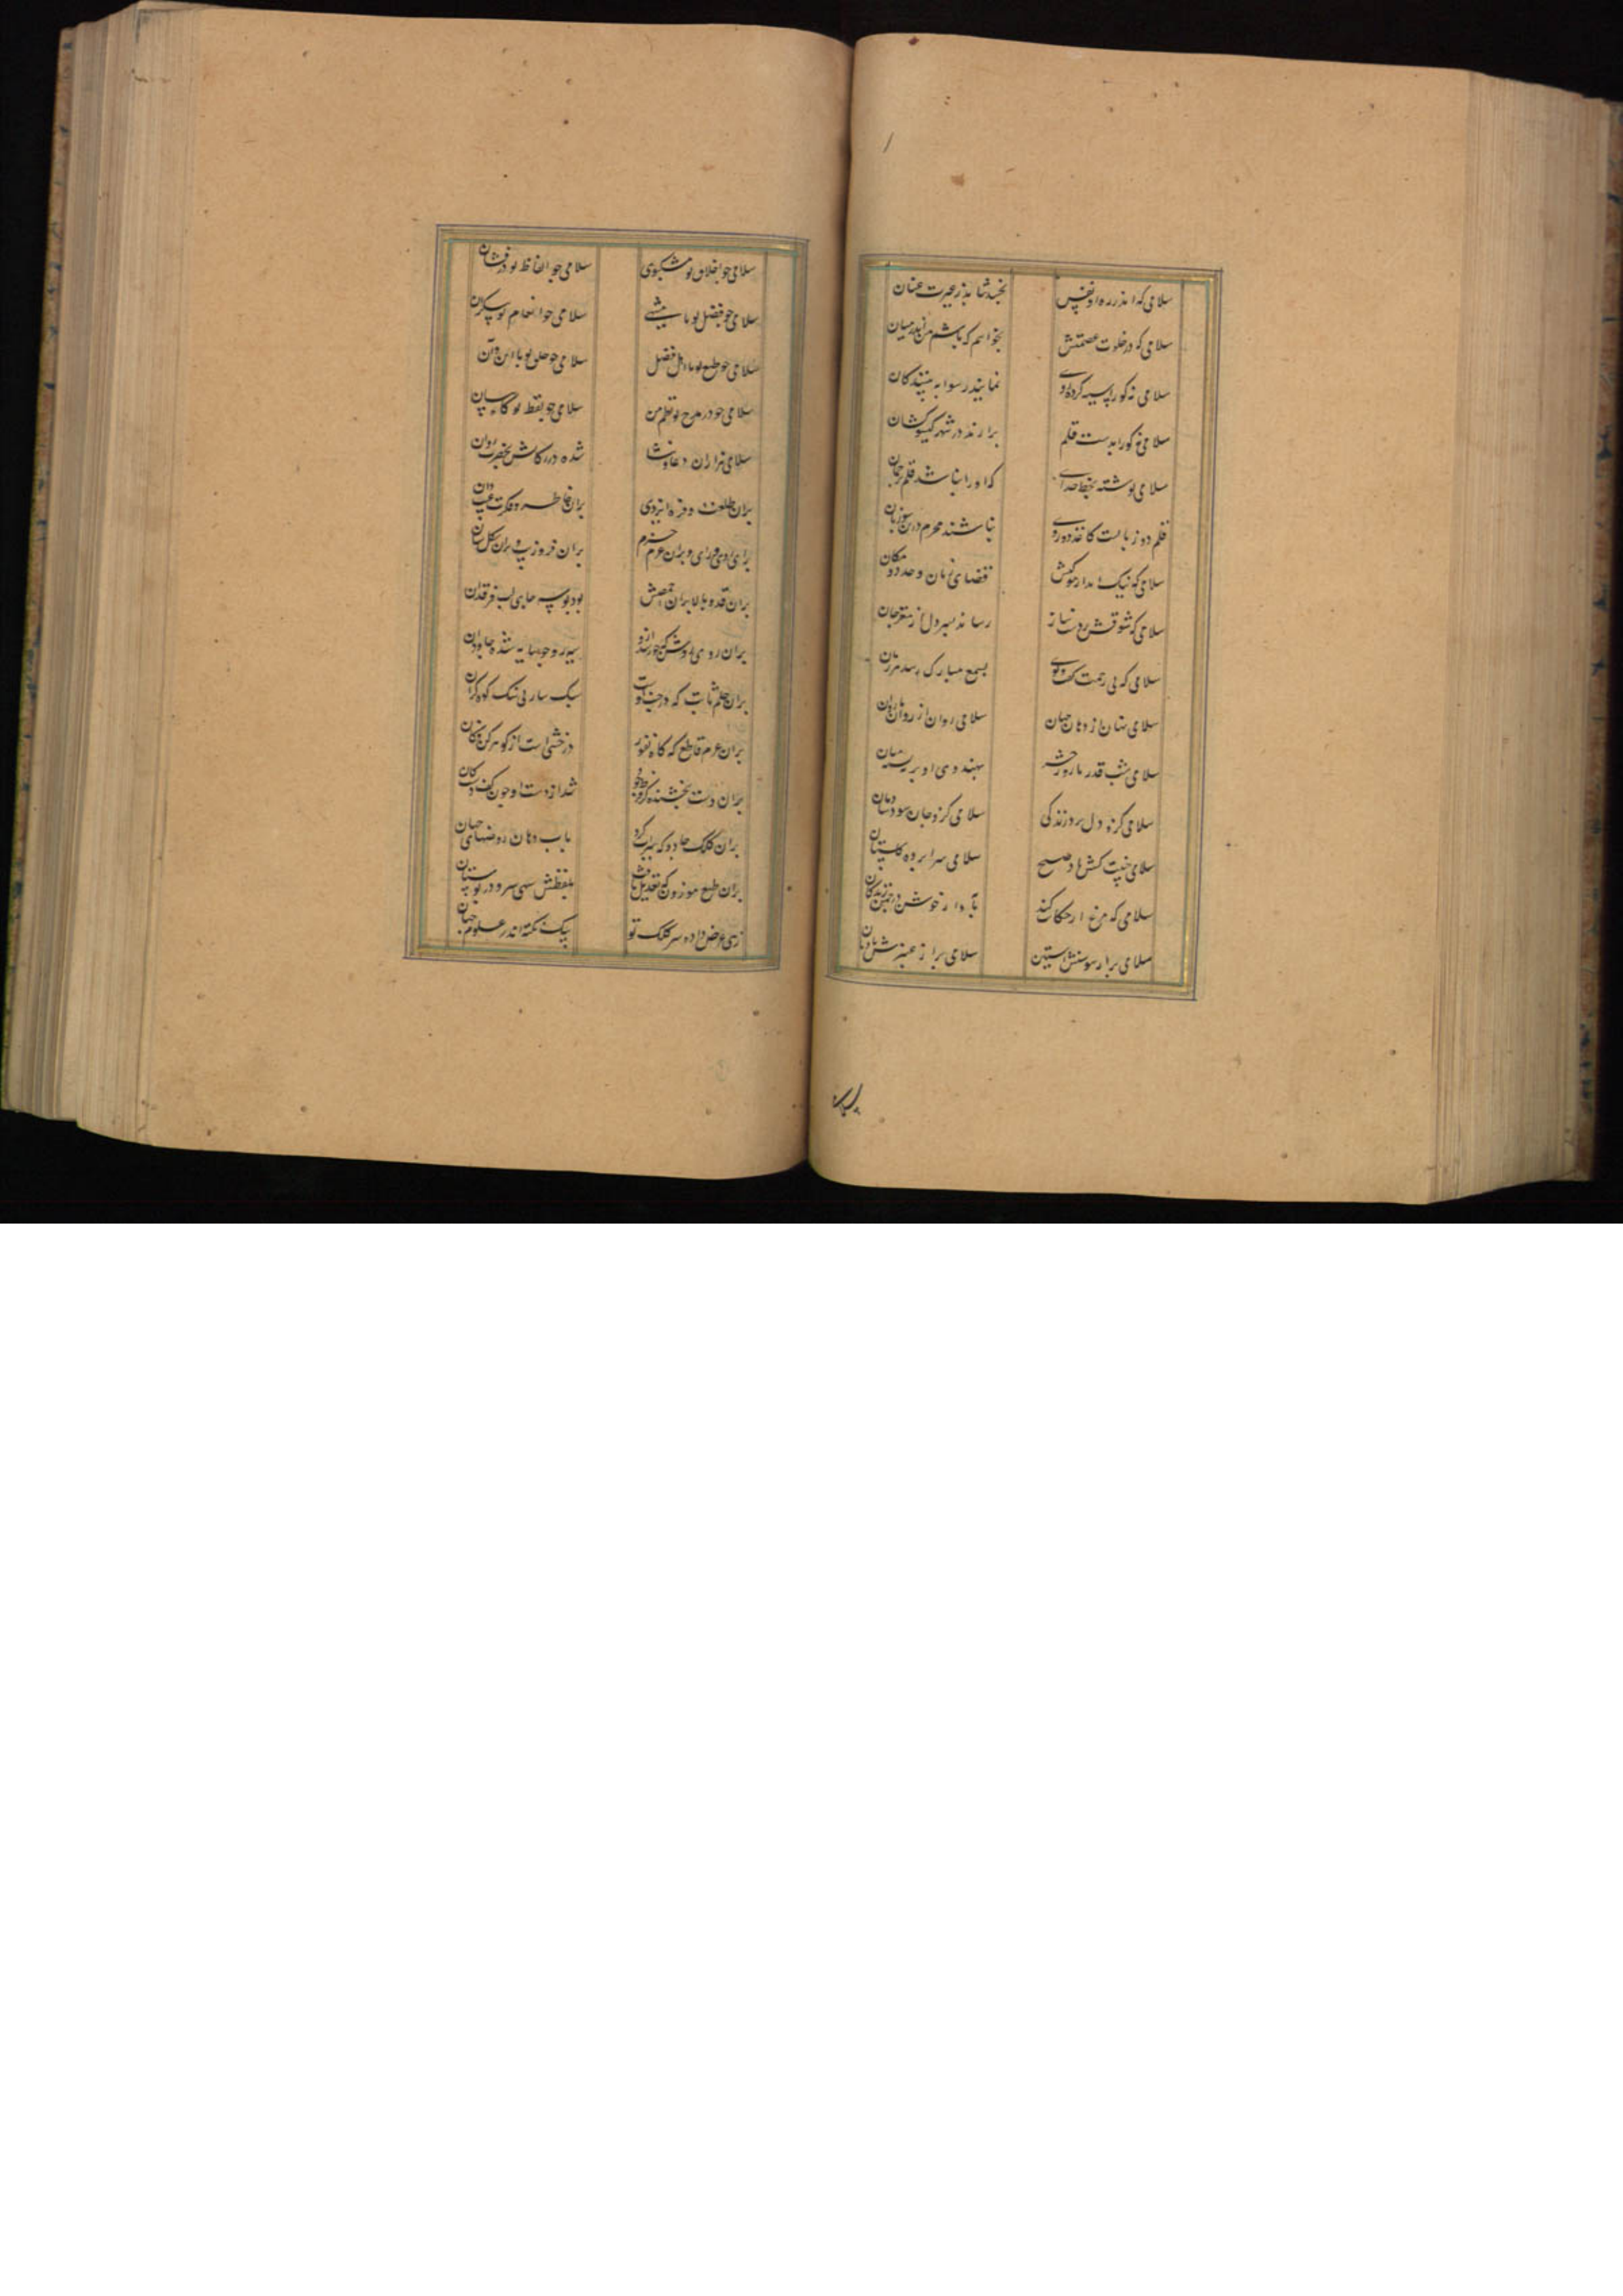 سلامی که اندر ره او نفس
نجنبد شاند ز غیرت عنان
سلامی که در خلوت عصمتش
نخواهم که باشم من اندر میان
سلامی نه کورا سیه کرده روی
نمایند رسوا به بینندگان
سلامی نه کورا بدست قلم
برارند در شهر کیسو کشان
سلامی نوشته بخط خدای
که او را نباشد قلم ترجمان
قلم دو زبانست کاغذ دو روی
نباشند محرم درین سوزیان
سلامی که نیک
فضای زمان و حدود مکان
سلامی که شوقش بدست نیاز
رساند سیر دل از مغز جان
سلامی که بی زحمت گفت و گوی
بسمع مبارک رسد هر زمان
سلامی نهان از دهان جهان
سلامی روان از روان با روان
سلامی شب قدر با روز حشر
بهندوی او بر میان
سلامی کزو دل برد زندگی
سلامی کزو جان سود
سلامی کش باد صبح
سلامی سراپرده گلستان
سلامی که مرغ ار حکایت کند
به آواز خوش در چمن
سلامی پر از سوسنش آستین
سلامی پر از عنبرش بادبان
سلامی چو اخلاق تو مشکبوی
سلامی چو الفاظ تو درفشان
سلامی چو فضل تو
سلامی چو انعام تو بیکران
سلامی چو طبع تو با اهل فضل
سلامی چو خلق تو با این و آن
سلامی چو در مدح تو نظم من
سلامی چو لفظ تو گاه بیان
سلامی هزاران دعا و ثنا
شده در رکابش بحضرت روان
بران طلعت و فره ایزدی
بران خاطر و فکرت غیب دان
بران روی و رای و بران عزم و حزم
بران فر و زیب و بران شکل و سان
بران قد و بالا بران اخمصش
بود بوسه جای لب فرقدان
بران روی روشن که خورشید ازو
سیه رو چو سایه شده جاودان
بران حلم ثابت که در جنب اوست
سبک سار بی سنگ کوه گران
بران عزم قاطع که گاه نفوذ
درخشیست از گوهر کن فکان
بران دست بخشنده کز جود او
شد از دست او چون کف دست کان
بران کلک جادو که سیراب کرد
باب دهان روضهای جهان
بران طبع موزون که تعدیل یافت
بلفظش سهی سرو در بوستان
زهی عرض داده سر کلک تو
بیک نکته اندر علوم جهان